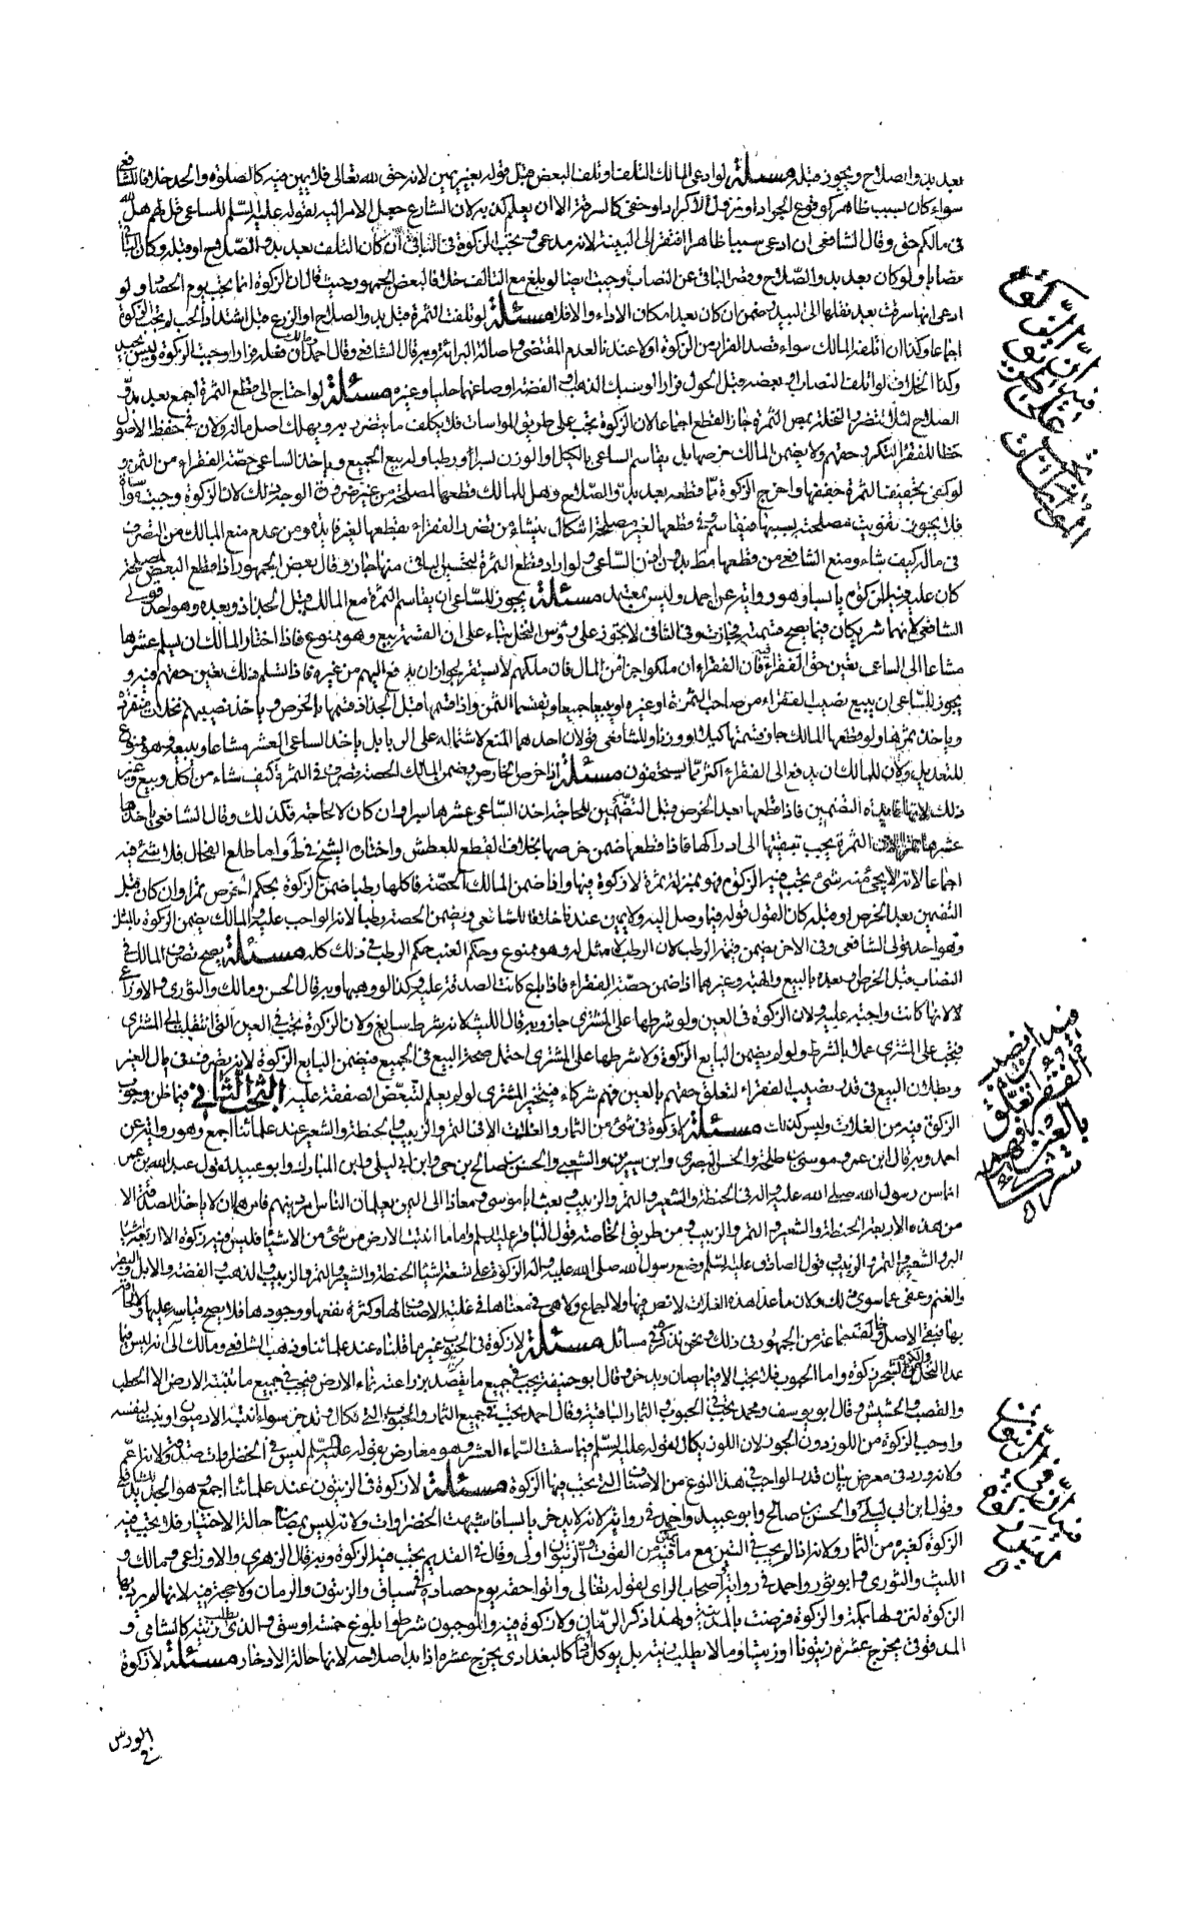 بعد بدو الصلاح ويجوز قبله مسئلة لو ادعى المالك التلف او تلف البعض قبل قوله بغير يمين لانه حق لله تعالى فلا يمين فيه كالصلوة والحد خلافا للشافعي
سواء كان بسبب ظاهر كوقوع الجراد او نزول الاكراد او خفي كالسرقة الا ان يعلم كذبه لان الشارع جعل الامر اليه بقوله عليه السلم للساعي قل لهم هل لله
في مالكم حق وقال الشافعي ان ادعى سببا ظاهرا افتقر الى البينة لانه مدعي ويجب الزكوة في الباقي ان كان التلف بعد بدو الصلاح او قبله وكان الباقي
نصابا ولو كان بعد بدو الصلاح ونقص الباقي عن النصاب وجبت ايضا لو بلغ مع التالف خلافا لبعض الجمهور حيث قال ان الزكوة انما يجب يوم الحصاد ولو
ادعى انها سرقت بعد نقلها الى البيدر ضمن ان كان بعد امكان الاداء والا فلا مسئلة لو تلفت الثمرة قبل بدو الصلاح او الزرع قبل اشتداد الحب لم يجب الزكوة
اجماعا وكذا ان اتلفه المالك سواء قصد الفرار من الزكوة اولا عندنا لعدم المقتضي واصالة البرائة وبه قال الشافعي وقال احمد ومالك ان فعله فرارا وجبت الزكوة وليس بجيد
وكذا الخلاف لو اتلف النصاب او بعضه قبل الحول فرارا او سبك الذهب والفضة او صاغهما حليا وغيره مسئلة لو احتاج الى قطع الثمرة اجمع بعد بدو
الصلاح لئلا يتضرر النخلة بمص الثمرة جاز القطع اجماعا لان الزكوة يجب على طريق المواسات فلا يكلف ما يتضرر به ويهلك اصل ماله ولان في حفظ الاصول
حظا للفقراء لتكرر حقهم ولا يضمن المالك خرصها بل يقاسم الساعي بالكيل او الوزن بسرا او رطبا وله بيع الجميع وياخذ الساعي حصة الفقراء من الثمن و
لو كفى تخفيف الثمرة خففها واخرج الزكوة مما قطعه بعد بدو الصلاح وهل للمالك قطعها لمصلحة من غير ضرورة الوجه ذلك لان الزكوة وجبت مواساة
فلا يجوز تفويت مصلحته بسببها فيقاسم في قطعها لغير مصلحة اشكال ينشاء من تضرر الفقراء بقطعها لغير فايدة ومن عدم منع المالك من التصرف
في ماله كيف شاء ومنع الشافعي من قطعها مطلقا بدون اذن الساعي ولو اراد قطع الثمرة لتحسين الباقي منها جاز وقال بعض الجمهور اذا قطع البعض لمصلحة
كان عليه فيه الزكوة يابسا وهو رواية عن احمد وليس بمعتمد مسئلة يجوز للساعي ان يقاسم الثمرة مع المالك قبل الجذاذ وبعده وهو احد قولي
الشافعي لانهما شريكان فيها يصح قسمته فجازت وفي الثاني لا يجوز على رؤس النخل بناء على ان القسمة بيع وهو ممنوع فاذا اختار المالك ان يسلم عشرها
مشاعا الى الساعي تعين حق الفقراء فيه فان الفقراء ان ملكوا جزءا من المال فان ملكهم لا يستقر لجواز ان يدفع اليهم من غيره فاذا تسلم ذلك تعين حقهم فيه و
يجوز للساعي ان يبيع نصيب الفقراء من صاحب الثمرة او غيره او يبيعا جميعا ويقتسما الثمن واذا قسمها قبل الجذاذ قسمها بالخرص وياخذ نصيبهم نخلات منفردة
وياخذ ثمرتها ولو قطعها المالك جاز قسمتها كيلا ووزنا وللشافعي قولان احدهما المنع لاشتماله على الربا بل ياخذ الساعي العشر مشاعا ويبيعه وهو ممنوع
للتعديل ولان للمالك ان يدفع الى الفقراء اكثر مما يستحقون مسئلة اذا خرص الخارص وضمن المالك الحصة تصرف في الثمرة كيف شاء من اكل وبيع وغير
ذلك لانها فايدة التضمين فاذا قطعها بعد الخرص وقبل التضمين للحاجة اخذ الساعي عشرها بسرا وان كان لا لحاجة فكذلك وقال الشافعي ياخذها
عشرها تمرا لان الثمرة يجب تبقيتها الى ادراكها فاذا قطعها ضمن خرصها بخلاف القطع للعطش واختاره الشيخ في ط واما طلع الفحال فلا شئ فيه
اجماعا لانه لا يجئ منه شئ يجب فيه الزكوة فهو بمنزلة ثمرة لا زكوة فيها واذا ضمن المالك الحصة فاكلها رطبا ضمن الزكوة بحكم الخرص تمرا وان كان قبل
التضمين بعد الخرص او قبله كان القول قوله فيما وصل اليه ولا يمين عندنا خلافا للشافعي ويضمن الحصة رطبا لانه الواجب عليه والمالك يضمن الزكوة بالمثل
وهو احد قولي الشافعي وفي الاخر يضمن قيمة الرطب لان الرطب لا مثل له وهو ممنوع وحكم العنب حكم الرطب في ذلك كله مسئلة يصح تصرف المالك في
النصاب قبل الخرص وبعده بالبيع والهبة وغيرهما اذا ضمن حصة الفقراء فاذا باع كانت الصدقة عليه وكذا لو وهبها وبه قال الحسن ومالك والثوري والاوزاعي
لانها كانت واجبة عليه ولان الزكوة في العين ولو شرطها على المشتري جاز وبه قال الليث لانه شرط سايغ ولان الزكوة يجب في العين التي انتقلت الى المشتري
فيجب على المشتري عملا بالشرط ولو لم يضمن البايع الزكوة ولا شرطها على المشتري احتمل صحة البيع في الجميع فيضمن البايع الزكوة لانه تصرف في مال الغير
وبطلان البيع في قدر نصيب الفقراء لتعلق حقهم بالعين فهم شركاء فيتخير المشتري لو لم يعلم لتبعض الصفقة عليه البحث الثاني فيما ظن وجوب
الزكوة فيه من الغلات وليس كذلك مسئلة لا زكوة في شئ من الثمار والغلات الا في التمر والزبيب والحنطة والشعير عند علمائنا اجمع وهو رواية عن
احمد وبه قال ابن عمر وموسى بن طلحة والحسن البصري وابن سيرين والشعبي والحسن بن صالح بن حي وابن ابي ليلى وابن المبارك وابو عبيد لقول عبد الله بن عمر
انما سن رسول الله صلى الله عليه واله في الحنطة والشعير والتمر والزبيب وبعث ابا موسى ومعاذا الى اليمن يعلمان الناس امر دينهم فامرهما ان لا ياخذا الصدقة الا
من هذه الاربعة الحنطة والشعير والتمر والزبيب ومن طريق الخاصة قول الباقر عليه السلم واما ما انبتت الارض من شئ من الاشياء فليس فيه زكوة الا اربعة اشياء
البر والشعير والتمر والزبيب وقول الصادق عليه السلم وضع رسول الله صلى الله عليه واله الزكوة على تسعة اشياء الحنطة والشعير والتمر والزبيب والذهب والفضة والابل والبقر
والغنم وعفى عما سوى ذلك ولان ما عدا هذه الغلات لا نص فيها ولا اجماع ولا هي في معناها في غلبة الاقتيات بها وكثرة نفعها ووجودها فلا يصح قياسه عليها ولا الحاقه
بها فيبقى الاصل وقد خالفنا جماعة من الجمهور في ذلك ونحن نذكره في مسائل مسئلة لا زكوة في الحبوب غير ما قلناه عند علمائنا وذهب الشافعي ومالك الى انه ليس فيما
عدا النخل والكرم من الشجر زكوة واما الحبوب فلا يجب الا فيما يقتات ويدخر وقال ابو حنيفة يجب في جميع ما يقصد بزراعته نماء الارض فيجب في جميع ما تنبته الارض الا الحطب
والقصب والحشيش وقال ابو يوسف ومحمد يجب في الحبوب والثمار الباقية وقال احمد يجب في جميع الثمار والحبوب التي تكال وتدخر سواء انبته الادميون او نبت لنفسه
واوجب الزكوة من اللوز دون الجوز لان اللوز يكال لقوله عليه السلم فيما سقت السماء العشر وهو معارض بقوله عليه السلم ليس في الخضراوات صدقة ولانه اعم
ولانه ورد في معرض بيان قدر الواجب في هذا النوع من الاصناف التي تجب فيها الزكوة مسئلة لا زكوة في الزيتون عند علمائنا اجمع وهو الجديد للشافعي
وقول ابن ابي ليلى والحسن بن صالح وابو عبيد واحمد في رواية لانه لا يدخر يابسا فاشبهت الخضراوات ولانه ليس بمقتات حالة الاختيار فلا يجب فيه
الزكوة كغيره من الثمار ولانه اذا لم يجب في التين مع ما فيه من القوت ففي الزيتون اولى وقال في القديم يجب فيه الزكوة وبه قال الزهري والاوزاعي ومالك و
الليث والثوري وابو ثور واحمد في رواية واصحاب الراي لقوله تعالى واتوا حقه يوم حصاده في سياق والزيتون والرمان ولا حجة فيه لانها لم يرد بها
الزكوة لنزولها بمكة والزكوة فرضت بالمدينة ولهذا ذكر الرمان ولا زكوة فيه والموجبون شرطوا بلوغ خمسة اوسق والذي يطلب زيته كالشامي و
المدفوق يخرج عشره زيتونا او زيتا وما لا يطلب زيته بل يوكل حبا كالبغدادي يخرج عشره اذا بدا صلاحه لانها حالة الادخار مسئلة لا زكوة
فيه ان الزكوة
يجب على طريق
المواسات
فيه ان نصيب
الفقراء تعلق
بالعين فهم
شركاء
فيه ان في الزيتون
ليس زكوة
في الورس